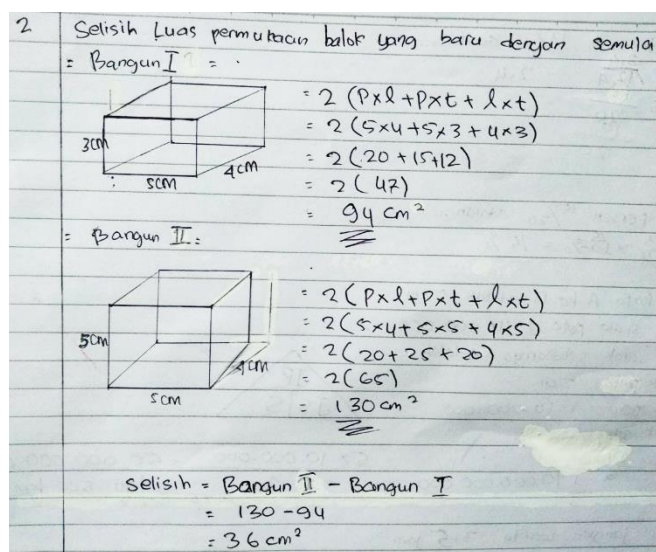 2 Selisih Luas permukaan balok yang baru dengan semula
= Bangun I = .
3cm
5cm
4cm
= 2 (Pxl + Pxt + lxt)
= 2 (5x4 + 5x3 + 4x3)
= 2 (20 + 15+12)
= 2 (47)
= 94 cm²
= Bangun II =
5cm
5cm
4cm
= 2 (Pxl + Pxt + lxt)
= 2 (5x4 + 5x5 + 4x5)
= 2 (20 + 25 + 20)
= 2 (65)
= 130 cm²
Selisih = Bangun II - Bangun I
= 130 - 94
= 36 cm²